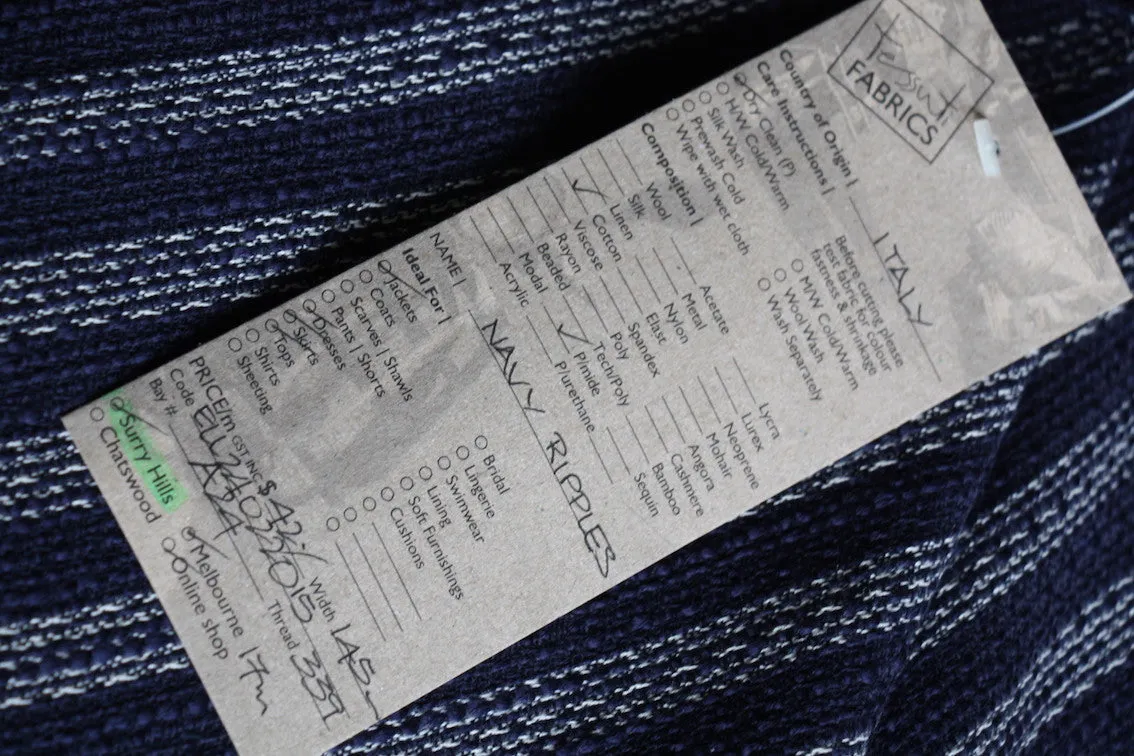 Tessuti
FABRICS
Country of Origin | ITALY
Care Instructions |
Before cutting please
test fabric for colour
fastness & shrinkage
Dry Clean (P)
H/W Cold/Warm
Silk Wash
Prewash Cold
Wipe with wet cloth
M/W Cold/Warm
Wool Wash
Wash Separately
Composition |
Wool
Silk
Linen
✓ Cotton
Viscose
Rayon
Beaded
Modal
Acrylic
Acetate
Metal
Nylon
Elast
Spandex
Poly
Tech/Poly
✓ P/mide
P/urethane
Lycra
Lurex
Neoprene
Mohair
Angora
Cashmere
Bamboo
Sequin
NAME | NAVY RIPPLES
Ideal For |
Jackets
Coats
Scarves | Shawls
Pants | Shorts
Dresses
Skirts
Tops
Shirts
Sheeting
Bridal
Lingerie
Swimwear
Lining
Soft Furnishings
Cushions
PRICE/m GST INC $ Width 145
Code
Bay # Thread
Surry Hills
Chatswood
Melbourne 17m
Online shop